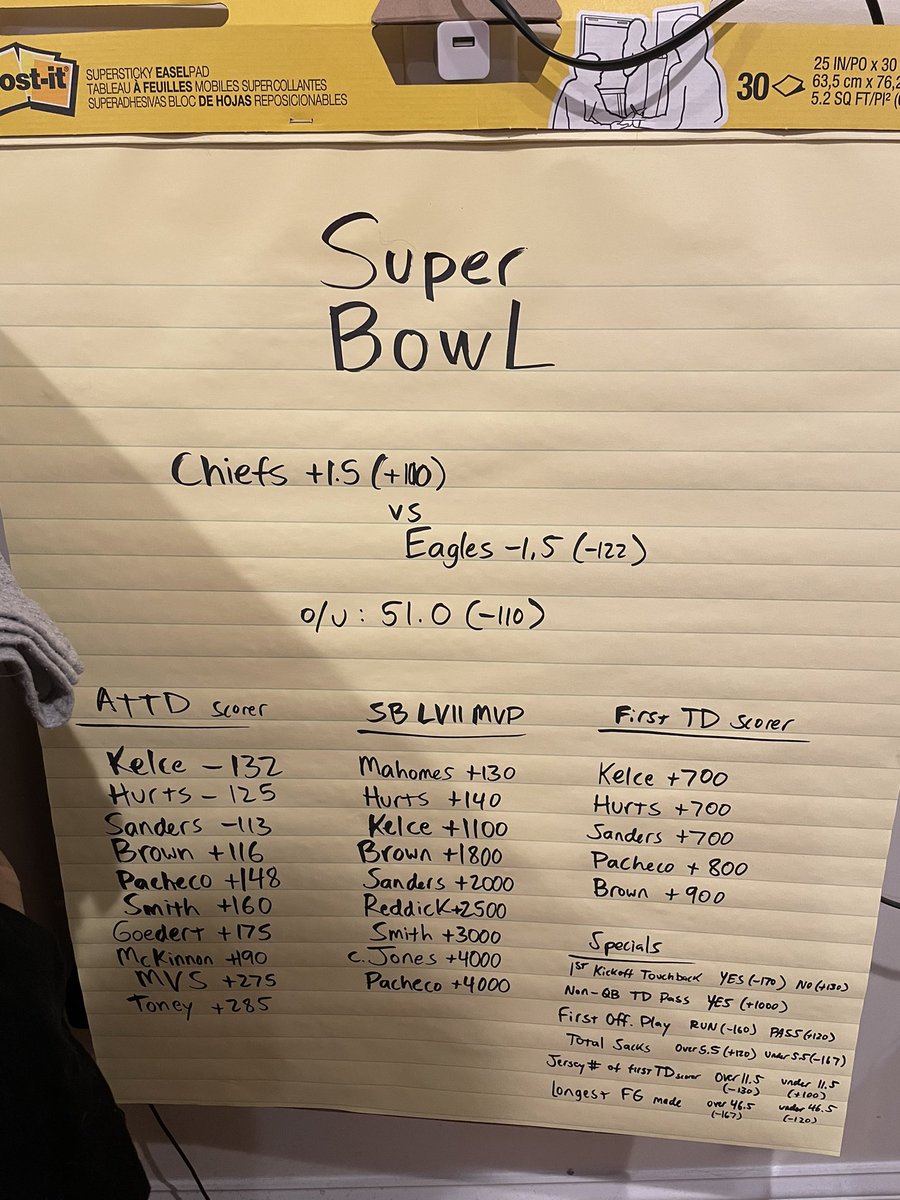 ost-it
SUPERSTICKY EASELPAD
TABLEAU À FEUILLES MOBILES SUPERCOLLANTES
SUPERADHESIVAS BLOC DE HOJAS REPOSICIONABLES
30
25 IN/PO x 30
63,5 cm x 76,2
5.2 SQ FT/PI²
Super
BowL
Chiefs +1.5 (+100)
vs
Eagles -1.5 (-122)
o/u: 51.0 (-110)
ATTD scorer
Kelce -132
Hurts -125
Sanders -113
Brown +116
Pacheco +148
Smith +160
Goedert +175
McKinnon +190
MVS +275
Toney +285
SB LVII MVP
Mahomes +130
Hurts +140
Kelce +1100
Brown +1800
Sanders +2000
Reddick +2500
Smith +3000
C. Jones +4000
Pacheco +4000
First TD Scorer
Kelce +700
Hurts +700
Sanders +700
Pacheco +800
Brown +900
Specials
1ST Kickoff Touchback YES (-170) NO (+130)
Non-QB TD Pass YES (+1000)
First Off. Play RUN (-160) PASS (+120)
Total Sacks Over 5.5 (+120) Under 5.5 (-167)
Jersey # of first TD scorer Over 11.5 (-130) under 11.5 (+100)
Longest FG made over 46.5 (-167) under 46.5 (-120)